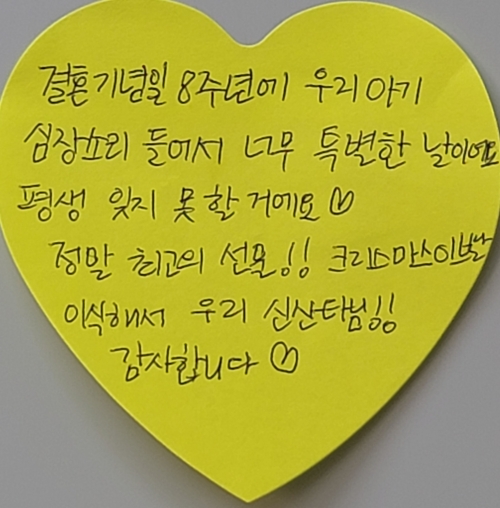 결혼기념일 8주년에 우리아기
심장소리 들어서 너무 특별한 날이에요
평생 잊지 못할 거에요♡
정말 최고의 선물!! 크리스마스이브날
이식해서 우리 신산타님!!
감사합니다♡